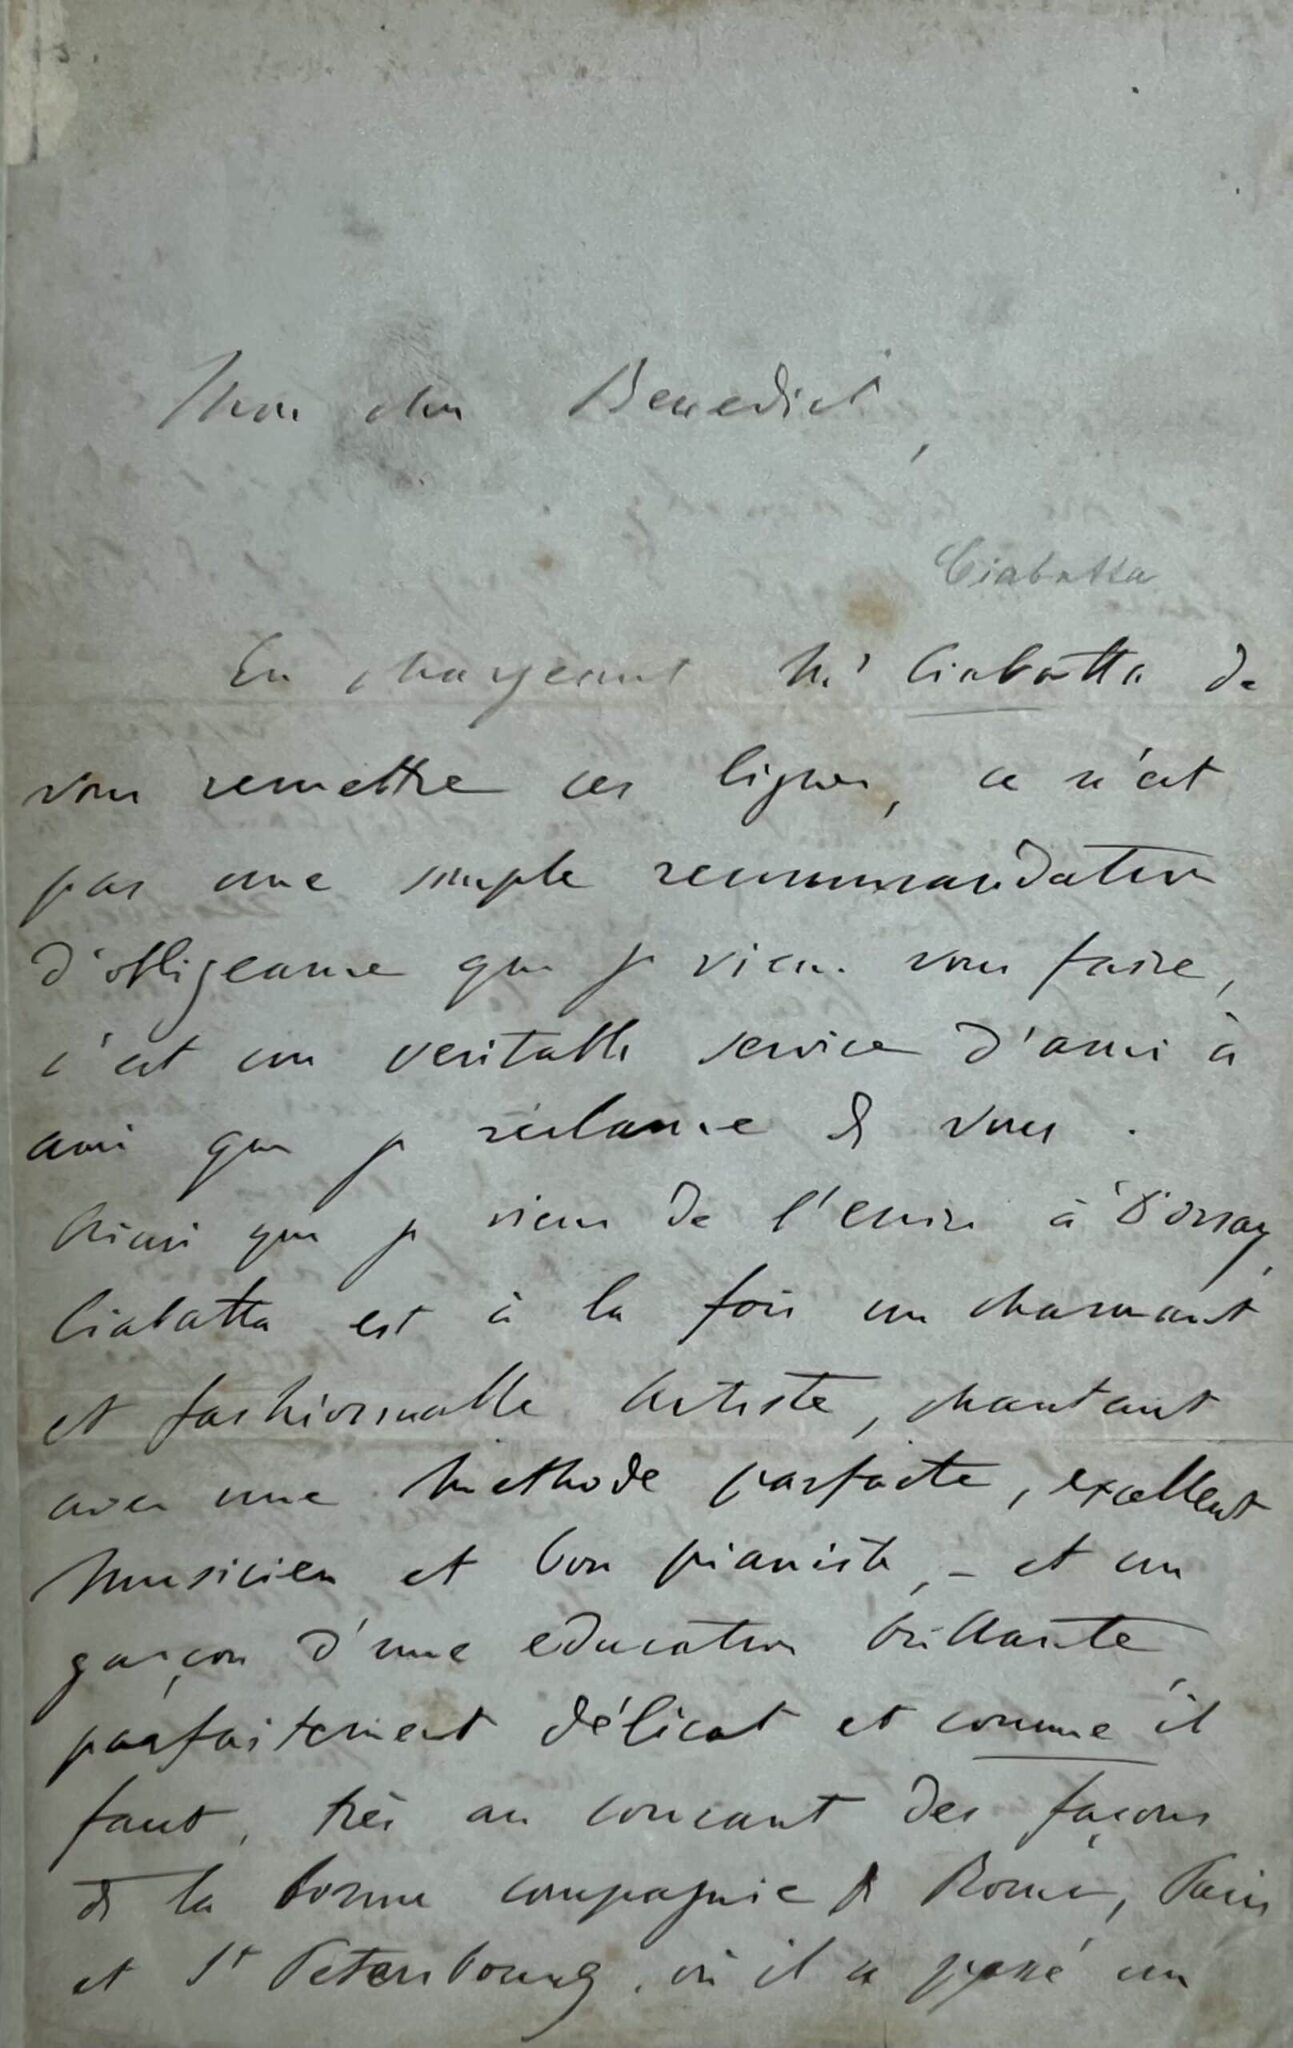 Mon cher Benedict,
Ciabatta
En chargeant Mr Ciabatta de
vous remettre ces lignes, ce n'est
pas une simple recommandation
d'obligeance que je viens vous faire,
c'est un veritable service d'ami à
ami que je réclame de vous.
Ainsi que je viens de l'écrire à D'orsay,
Ciabatta est à la fois un charmant
et fashionnable Artiste, chantant
avec une Methode parfaite, excellent
Musicien et bon pianiste, - et un
garçon d'une education brillante,
parfaitement délicat et comme il
faut, très au courant des façons
de la bonne compagnie de Rome, Paris
et St Petersbourg, où il a passé un